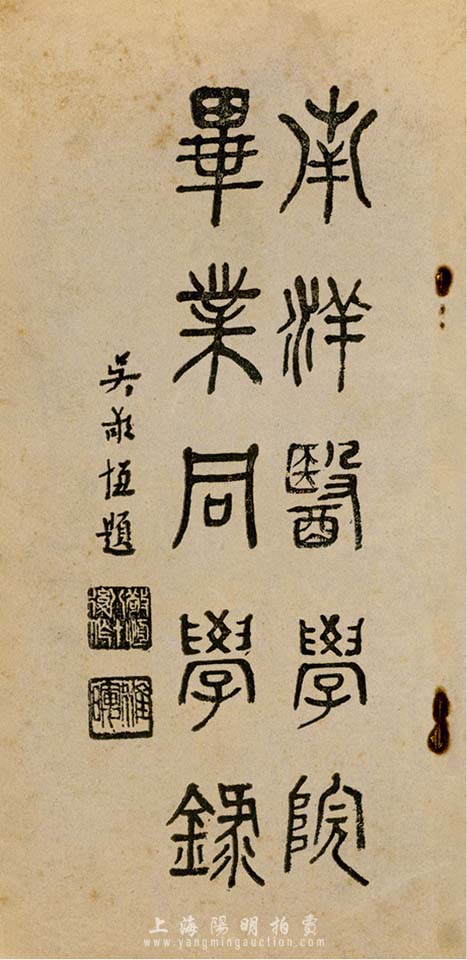 南洋醫學院
畢業同學錄
吳敬恆題
稚暉
上海陽明拍賣
www.yangmingauction.com